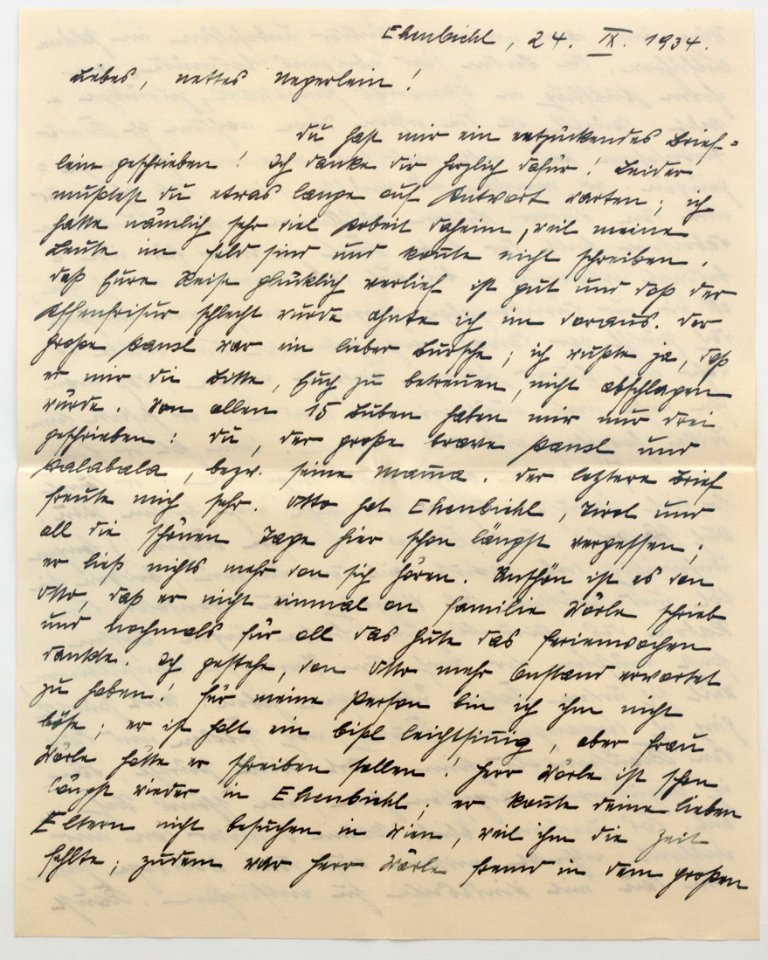 Ehenbichl, 24. IX. 1934.
Liebes, nettes Negerlein!
Du hast mir ein entzückendes Brief-
lein geschrieben! Ich danke dir herzlich dafür! Leider
mußtest du etwas lange auf Antwort warten; ich
hatte nämlich sehr viel Arbeit daheim, weil meine
Leute im Feld sind und konnte nicht schreiben.
Daß Eure Reise glücklich verlief ist gut und daß der
Affenfrisur schlecht wurde ahnte ich im voraus. Der
große Hansl war ein lieber Bursche; ich wußte ja, daß
er mir die Bitte, Euch zu betreuen, nicht abschlagen
würde. Von allen 15 Buben haben mir nur drei
geschrieben: Du, der große brave Hansl und
Palabala, bezw. seine Mama. Der letztere Brief
freute mich sehr. Otto hat Ehenbichl, Tirol und
all die schönen Tage hier schon längst vergessen;
er ließ nichts mehr von sich hören. Unschön ist es von
Otto, daß er nicht einmal an Familie Wörle schrieb
und nochmals für all das Gute das Ferienwochen
dankte. Ich gestehe, von Otto mehr Anstand erwartet
zu haben! Für meine Person bin ich ihm nicht
böse; er ist halt ein bißl leichtsinnig, aber Frau
Wörle hätte er schreiben sollen! Herr Wörle ist schon
längst wieder in Ehenbichl; er konnte deine lieben
Eltern nicht besuchen in Wien, weil ihm die Zeit
fehlte; zudem war Herr Wörle fremd in dem großen